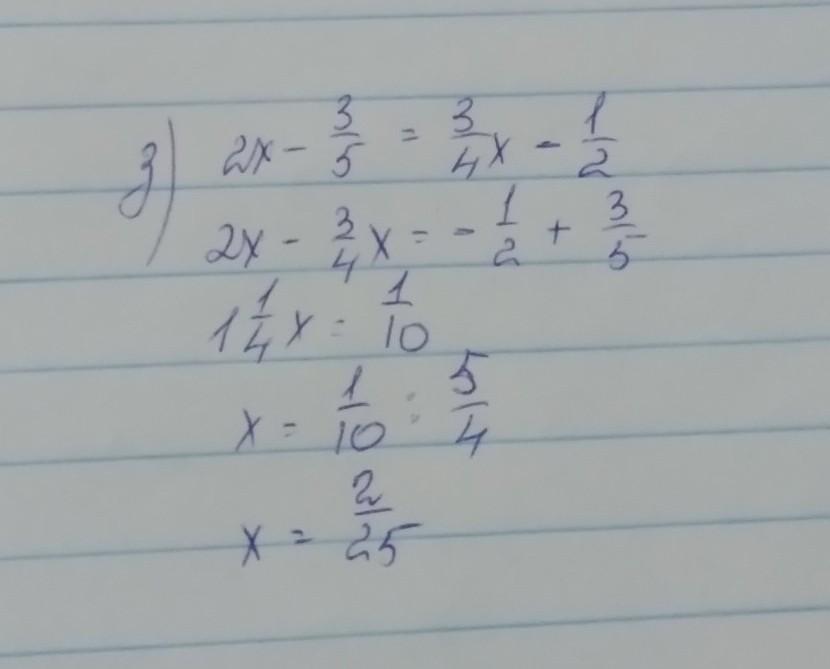 з) 2x - 3/5 = 3/4 x - 1/2
2x - 3/4 x = - 1/2 + 3/5
1 1/4 x = 1/10
x = 1/10 : 5/4
x = 2/25